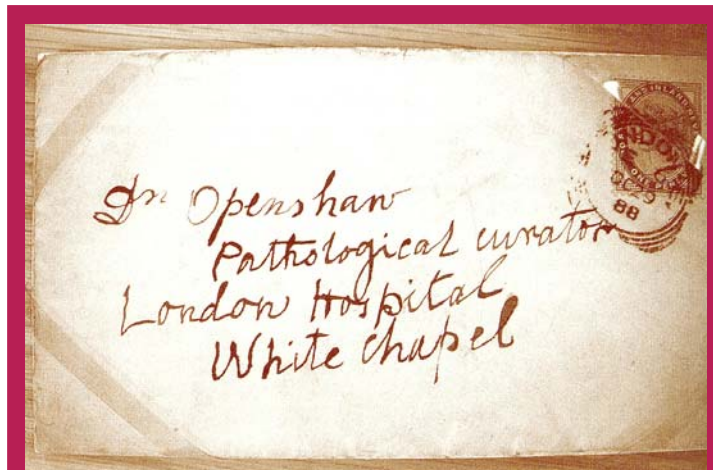 Dr Openshaw
Pathological curator
London Hospital
White chapel
LONDON
OC 29
88